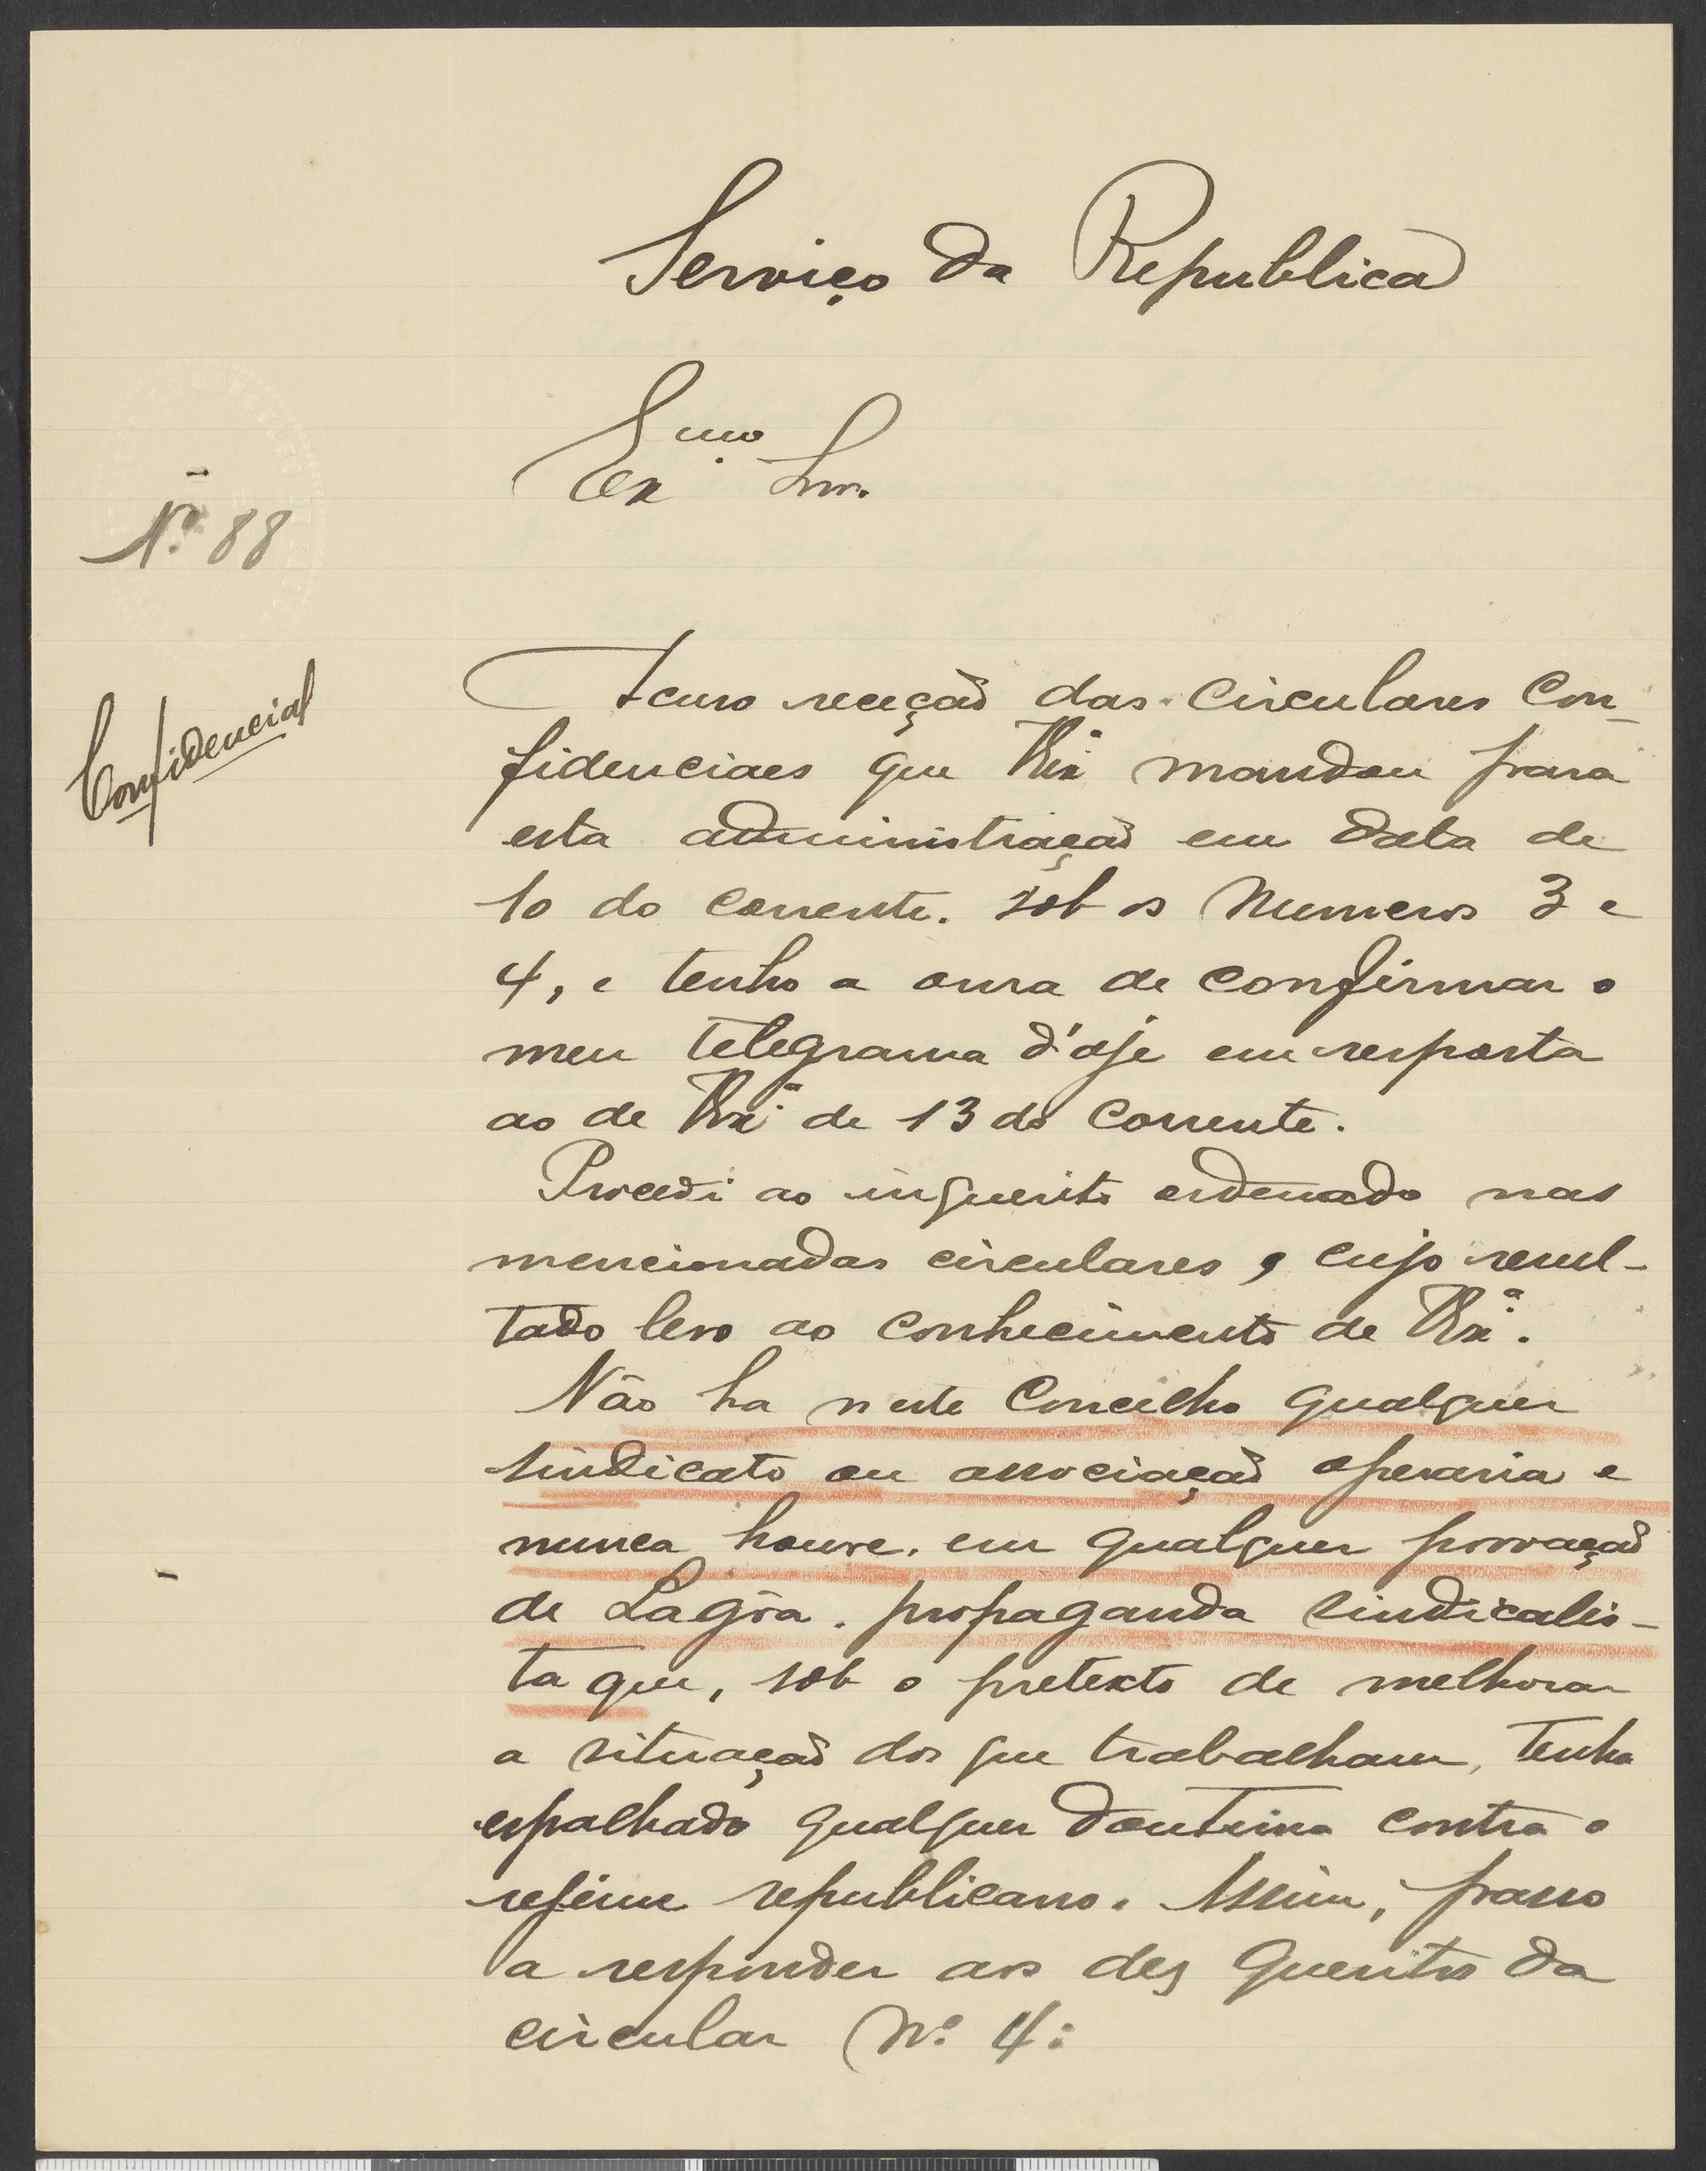 Serviço da Republica
Exmo Snr.
Nº 88
Confidencial
Acuso receção das circulares con-
fidenciaes que V.Exª mandou para
esta administração em data de
10 do corrente. sob os numeros 3 e
4, e tenho a onra de confirmar o
meu telegrama d'oje em resposta
ao de V.Exª de 13 do corrente.
Procedi ao inquerito ordenado nas
mencionadas circulares, cujo resul-
tado levo ao conhecimento de V.Exª.
Não ha neste Concelho qualquer
sindicato ou associação operaria e
nunca houve, em qualquer povoação
de Lagôa, propaganda sindicalis-
ta que, sob o pretexto de melhorar
a situação dos que trabalham, tenha
espalhado qualquer doutrina contra o
regimen republicano. Assim, passo
a responder aos dez quesitos da
circular Nº 4: